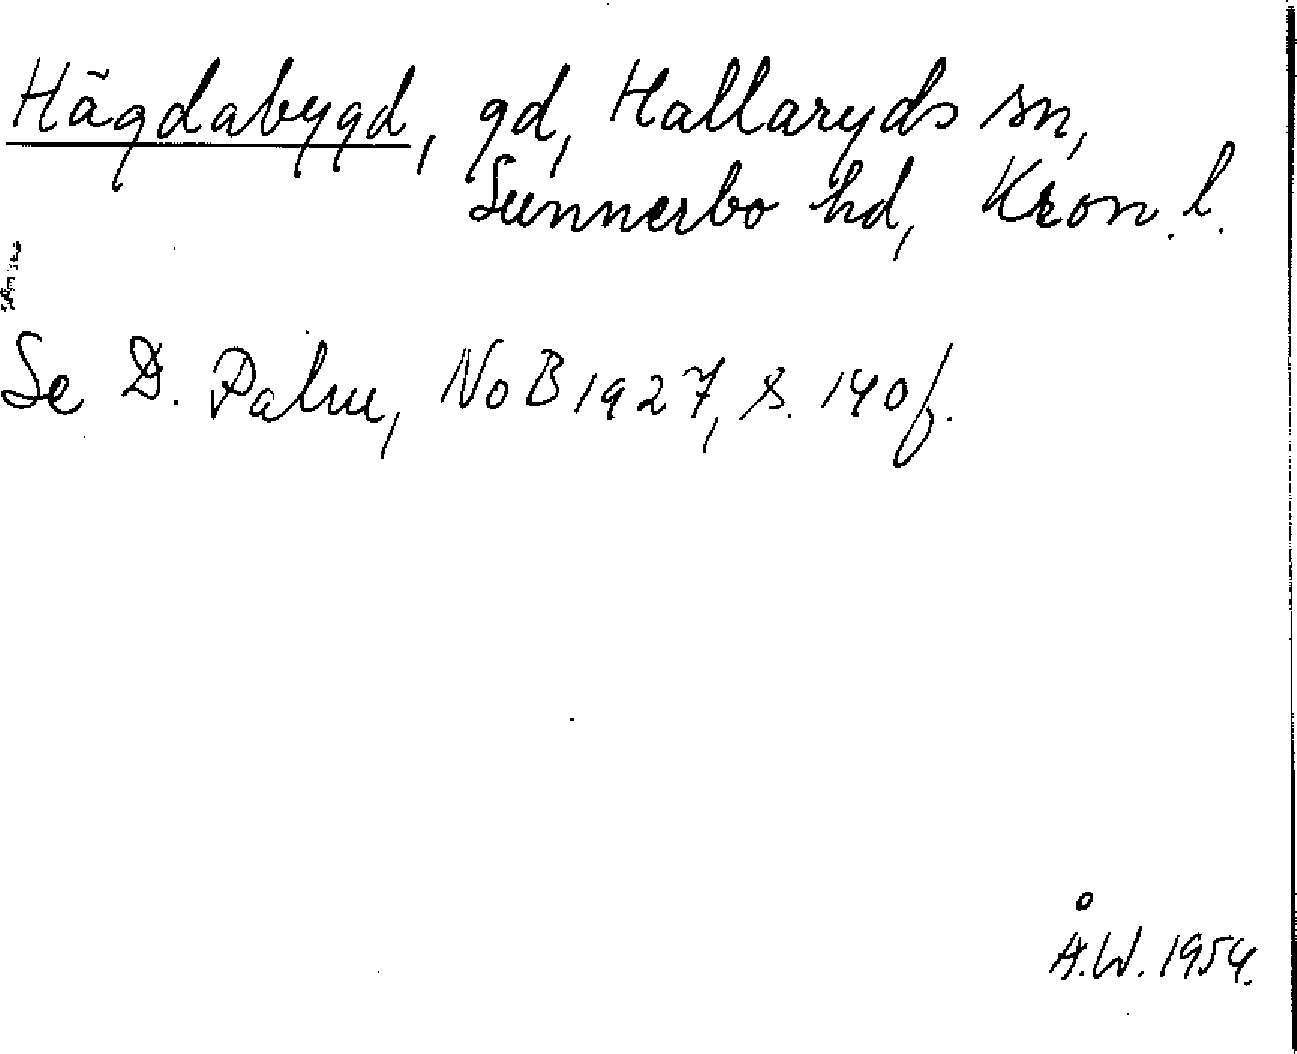 Hägdabygd, gd, Hallaryds sn,
Sunnerbo hd, Kron. l.
Se D. Palm, NoB 1927, s. 140 f.
Å.W. 1954.